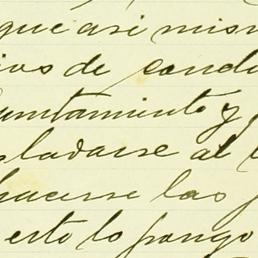 que asi mism
ivos de condu
untamiento y
sladarse al
hacerse las
esto lo pongo